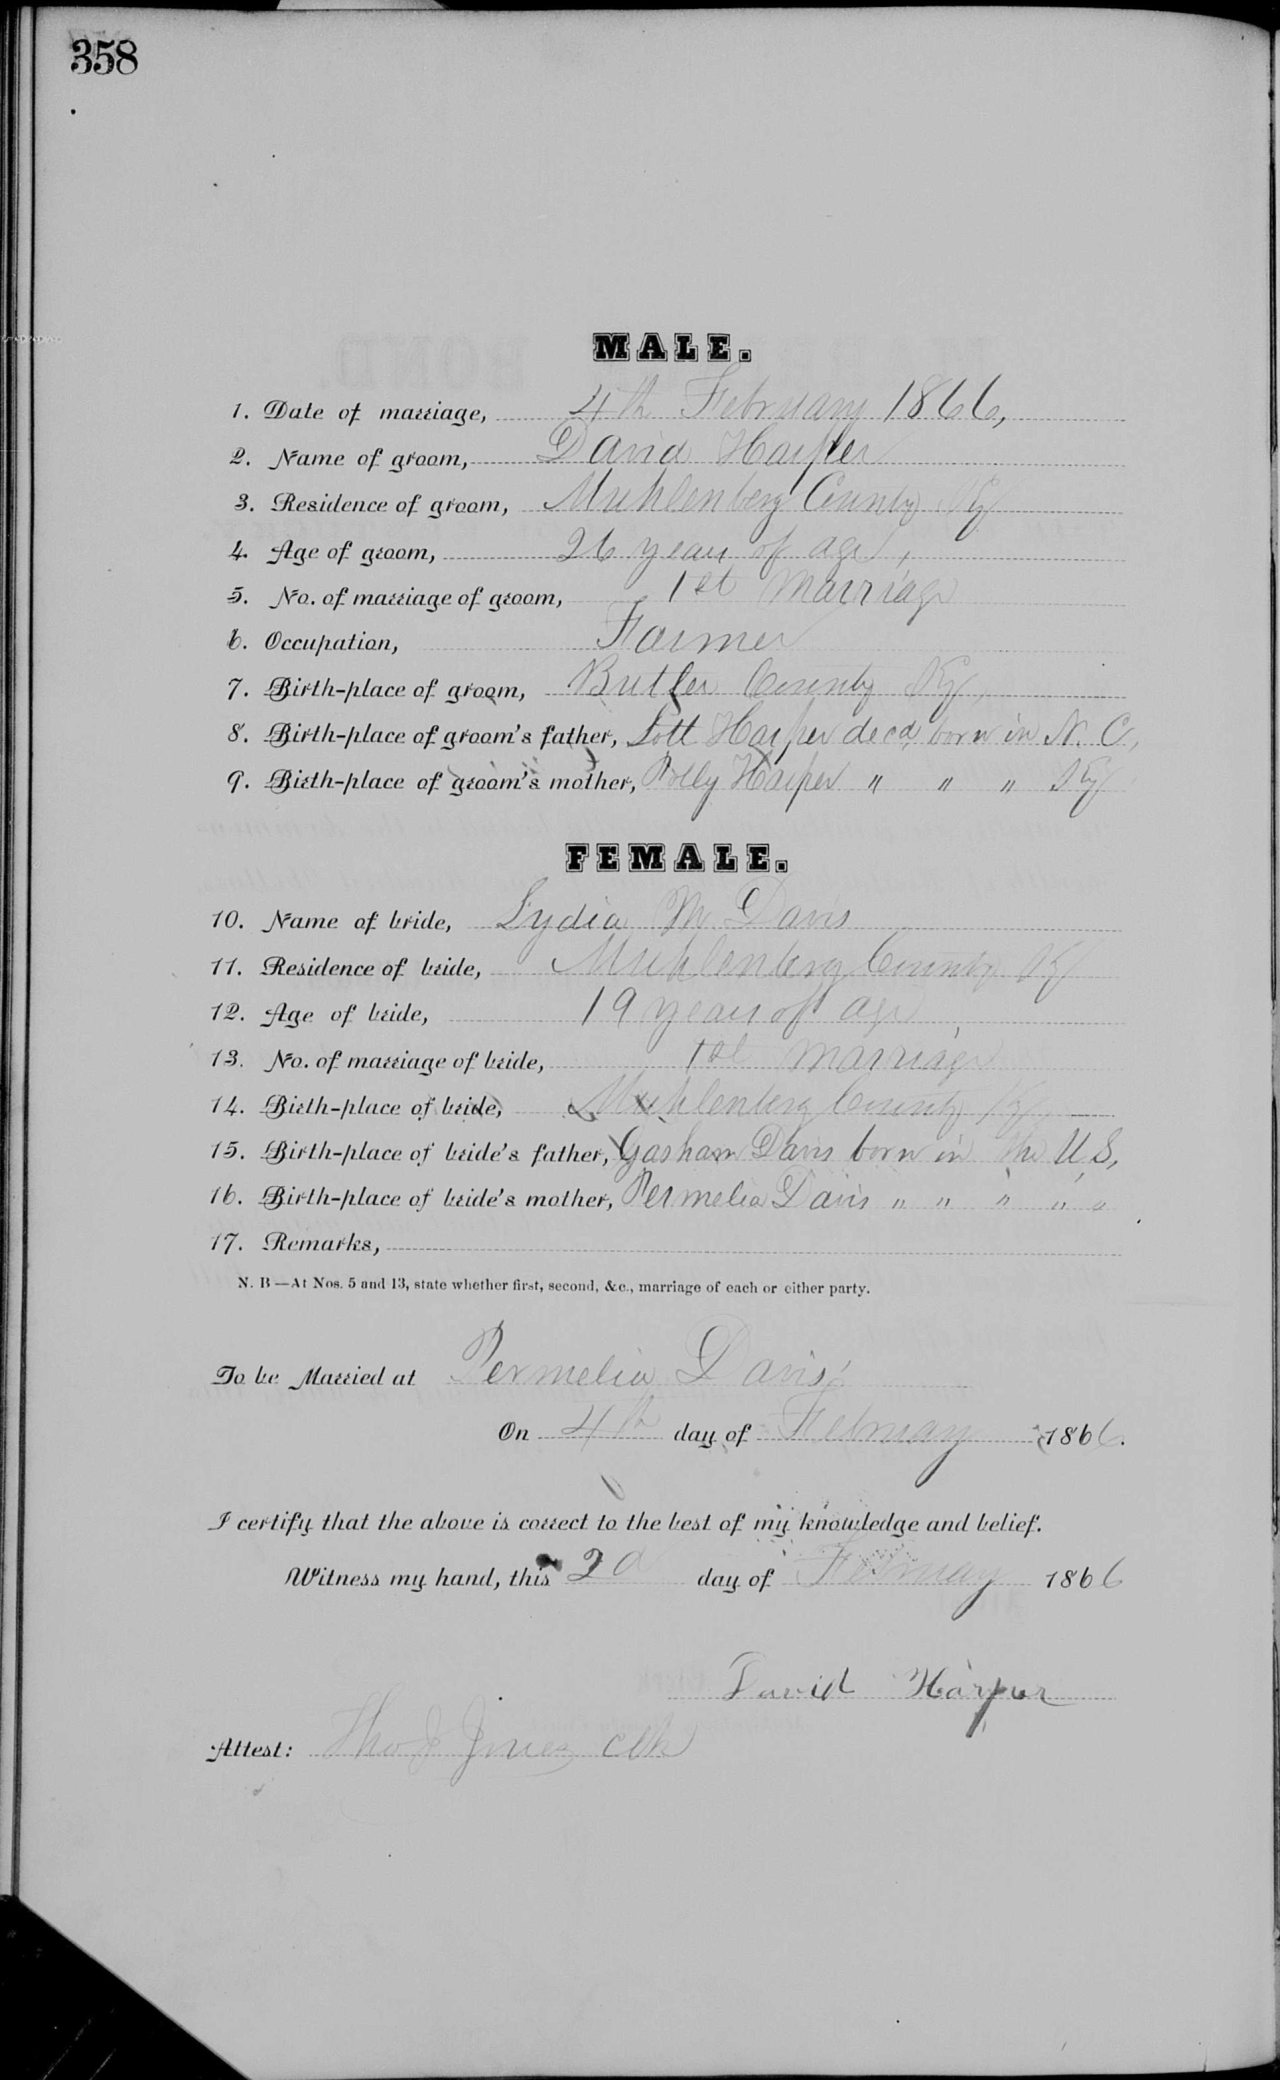 358
MALE.
1. Date of marriage, 4th February 1866,
2. Name of groom, David Harper
3. Residence of groom, Muhlenberg County Ky
4. Age of groom, 26 years of age,
5. No. of marriage of groom, 1st Marriage
6. Occupation, Farmer
7. Birth-place of groom, Butler County Ky,
8. Birth-place of groom's father, Lott Harper decd, born in N. C,
9. Birth-place of groom's mother, Polly Harper " " " Ky
FEMALE.
10. Name of bride, Lydia M. Davis
11. Residence of bride, Muhlenberg County Ky
12. Age of bride, 19 years of age,
13. No. of marriage of bride, 1st marriage
14. Birth-place of bride, Muhlenberg County Ky,
15. Birth-place of bride's father, Gasham Davis born in the U,S,
16. Birth-place of bride's mother, Permelia Davis " " " " "
17. Remarks,
N. B—At Nos. 5 and 13, state whether first, second, &c., marriage of each or either party.
To be Married at Permelia Davis'
On 4th day of February 1866.
I certify that the above is correct to the best of my knowledge and belief.
Witness my hand, this 2d day of February 1866
David Harper
Attest: Tho J Jones clk